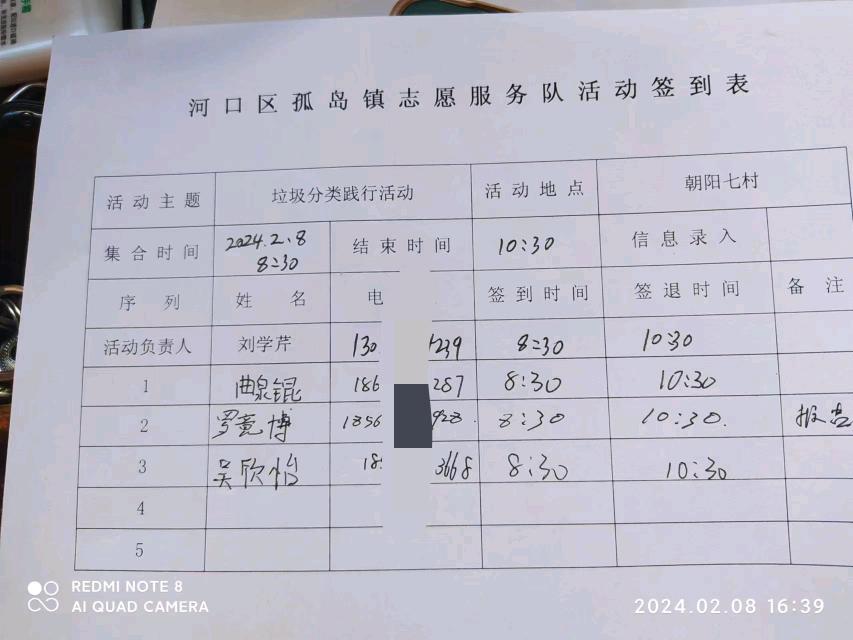 河口区孤岛镇志愿服务队活动签到表
活动主题 垃圾分类践行活动 活动地点 朝阳七村
集合时间 2024.2.8 8:30 结束时间 10:30 信息录入
序列 姓名 电 签到时间 签退时间 备注
活动负责人 刘学芹 130 1239 8:30 10:30
1 曲泉锟 186 287 8:30 10:30
2 罗竟博 1856 928 8:30 10:30.
3 吴欣怡 18 3668 8:30 10:30
4
5
REDMI NOTE 8
AI QUAD CAMERA
2024.02.08 16:39